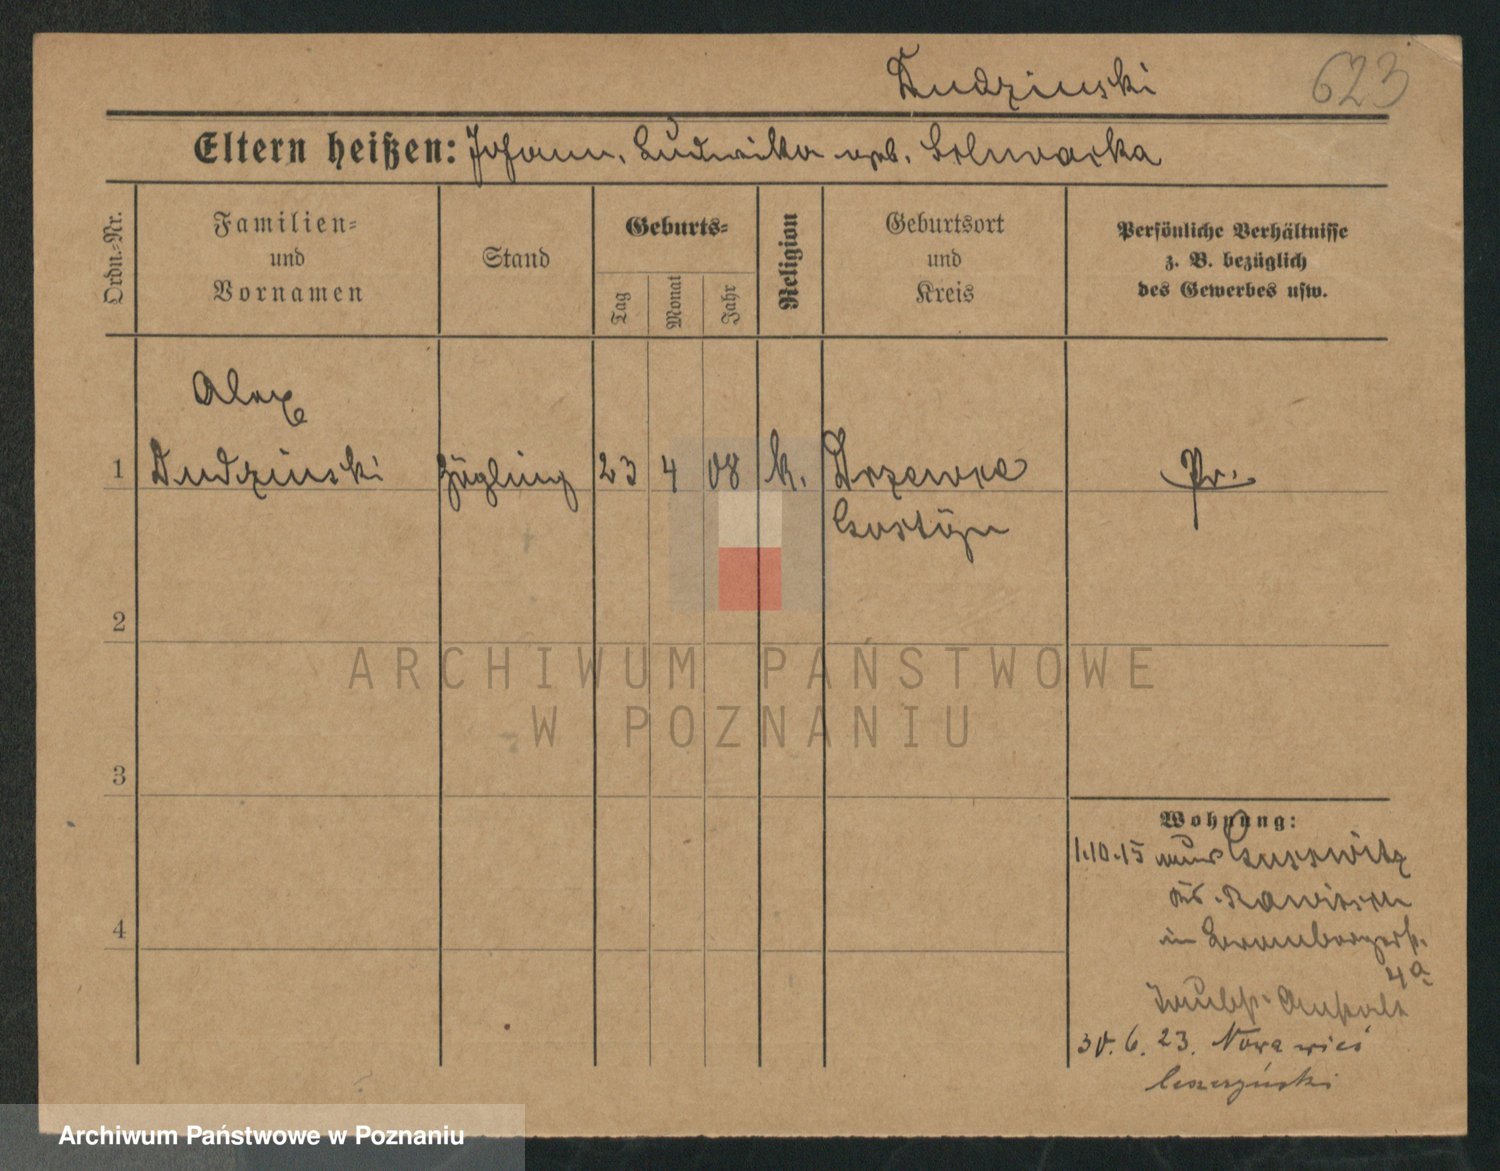 Dudzinski
623
Eltern heißen: Johann, Ludwika geb.
Ordn.-Nr.
Familien-
und
Vornamen
Stand
Geburts-
Tag
Monat
Jahr
Religion
Geburtsort
und
Kreis
Persönliche Verhältnisse
z. B. bezüglich
des Gewerbes usw.
Alex
1 Dudzinski Zögling 23 4 08 k. Drzewce Pr.
Gostÿn
2
ARCHIWUM PAŃSTWOWE
W POZNANIU
3
Wohnung:
1.10.15
Rawitsch
in Brombergerstr.
4
4a
Taubst. Anstalt
30. 6. 23. Nowa wieś
Archiwum Państwowe w Poznaniu